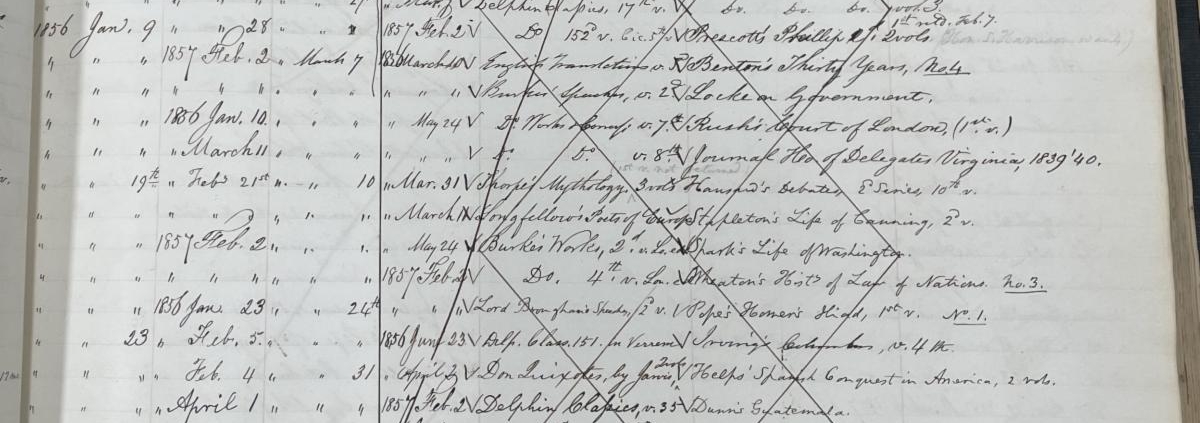 " Delphin Classics, 17th v. √ Do. Do. Do. 7 vol. 3.
1st retd. Feb. 7.
1856 Jan. 9 " " 28 " " " 1857 Feb. 2 √ Do 152d v. Cic. 5th v √ Prescott's Phillip 2d: 2 vols
" " " 1857 Feb. 2 " March 7 1856 March 10 √ English Translations, v. √ Benton's Thirty Years, No. 4
" " " " " " " " " " " √ Burke's Speeches, v. 2d √ Locke on Government.
" " " 1856 Jan. 10 " " " " May 24 √ Do. Works & v. 7th √ Rush's Court of London, (1st. v.)
" " " " March 11 " " " " " " √ Do. Do. v. 8th √ Journal Ho. of Delegates Virginia, 1839'40.
" " 19th " Feby 21st " " 10 " Mar. 31 √ Thorpe's Mythology, 3 vols Hansard's Debates, Series, 10th v.
" " " " " " " " " " March √ Longfellow's Poets of Europe Stapleton's Life of Canning, 2d v.
" " " 1857 Feb. 2 " " " " May 24 √ Burke's Works, 2d. v. Lo. ed √ Spark's Life of Washington.
" " " " " " " " " 1857 Feb. 2 √ Do. 4th. v. Lo. √ Wheaton's Histy of Law of Nations. No. 3.
" " " 1856 Jan. 23 " " 24th " " " √ Lord Brougham's Speeches, 2d v. √ Pope's Homer's Iliad, 1st v. No. 1.
" " 23 " Feb. 5. " " " 1856 June 23 √ Delp. Class. 151. in Verrem √ Irving's Columbus, v. 4th.
" " " " Feb. 4 " " 31 " April 2 √ Don Quixote, by Jarvis, 2 vols √ Helps' Spanish Conquest in America, 2 vols.
" " " " April 1 " " " 1857 Feb. 2 √ Delphin Classics, v. 35 √ Dunn's Guatemala.